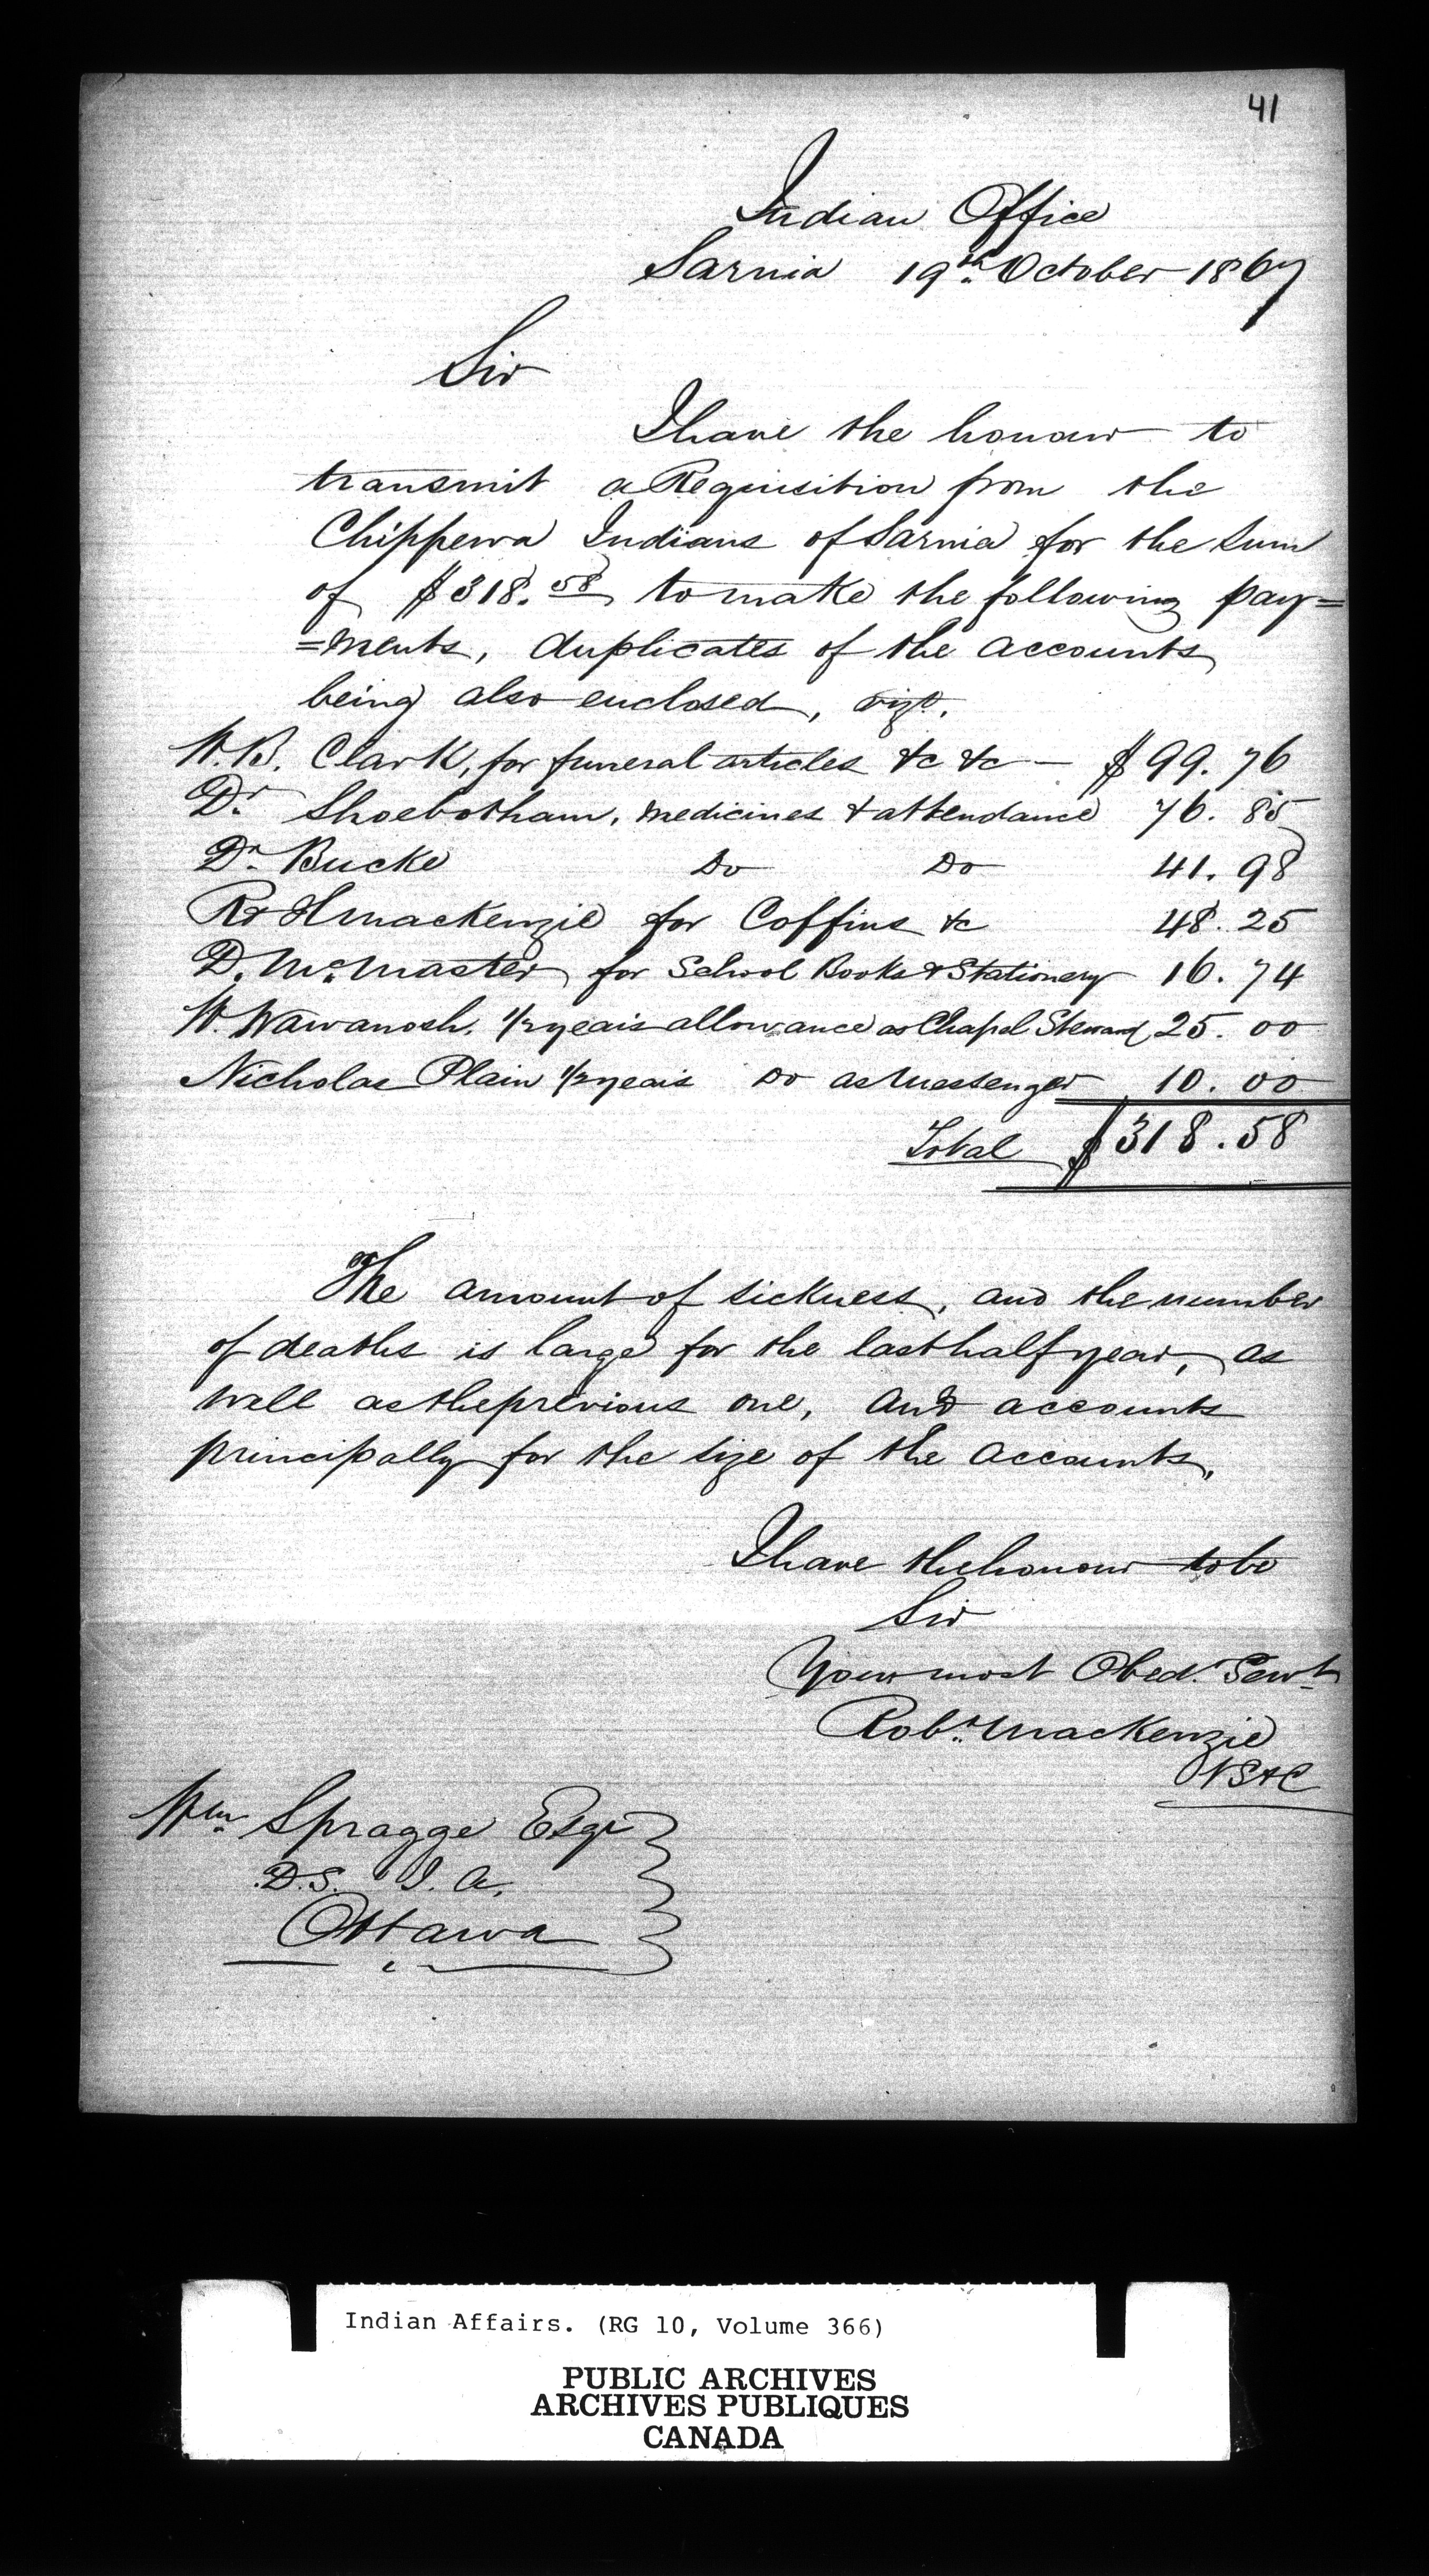 41
Indian Office
Sarnia 19th October 1867
Sir
I have the honour to
transmit a Requisition from the
Chippewa Indians of Sarnia for the sum
of $318.58 to make the following pay=
=ments, duplicates of the accounts
being also enclosed, vizt.
W.B. Clark, for funeral articles &c &c — $99.76
Dr Shoebotham, medicines & attendance 76.85
Dr Bucke Do Do 41.98
R & H Mackenzie for Coffins &c 48.25
D. McMaster for School Books & Stationery 16.74
W. Wawanosh. 1/2 years allowance as Chapel Steward 25.00
Nicholas Plain 1/2 years Do as Messenger 10.00
Total $318.58
The amount of sickness, and the number
of deaths is large for the last half year, as
well as the previous one, and accounts
principally for the size of the accounts.
I have the honour to be
Sir
Your most Obedt Servt
Robt Mackenzie
VS&C
Wm Spragge Esqr
D.S. I.A.
Ottawa
Indian Affairs. (RG 10, Volume 366)
PUBLIC ARCHIVES
ARCHIVES PUBLIQUES
CANADA